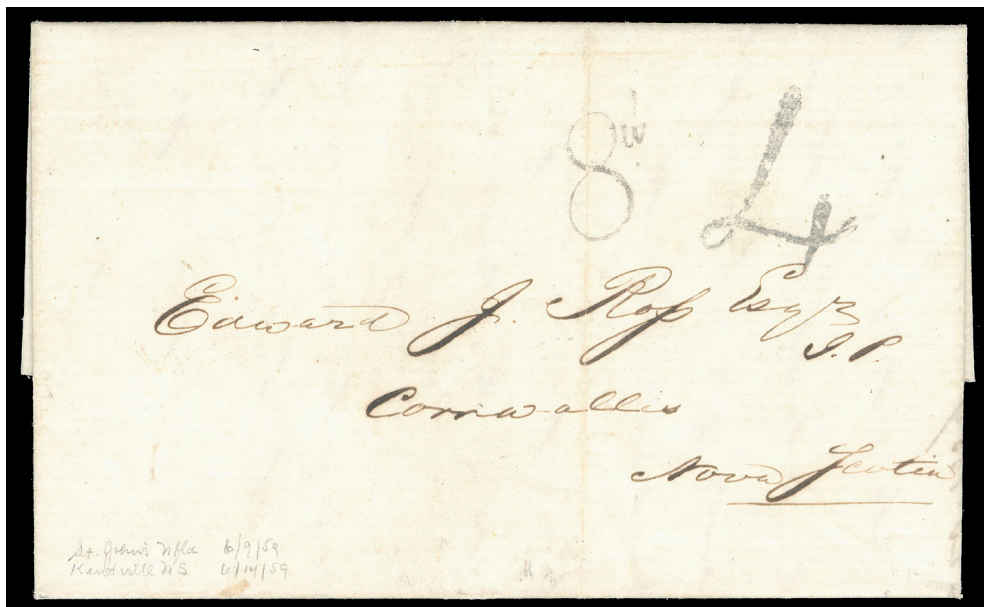 8d 4
Edward J. Ross Esqr
J. P.
Cornwallis
Nova Scotia
St. John's Nfld 6/9/59
Kentville NS 6/14/59